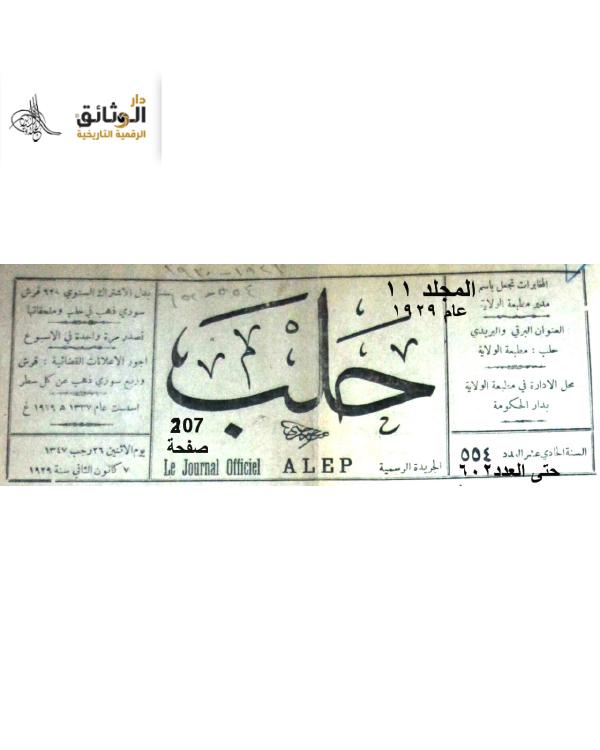 دار
الوثائق
الرقمية التاريخية
١٩٢٩ - ١٩٣٠
٥٥٤ - ٦٠٢
المخابرات تجعل باسم
مدير مطبعة الولاية
العنوان البرقي والبريدي
حلب : مطبعة الولاية
محل الادارة في مطبعة الولاية
بدار الحكومة
السنة الحادي عشر العدد ٥٥٤
حتى العدد ٦٠٢
المجلد ١١
عام ١٩٢٩
حلب
207
صفحة
Le Journal Officiel ALEP الجريدة الرسمية
بدل الاشتراك السنوي ٦٢٠ قرش
سوري ذهب في حلب وملحقاتها
تصدر مرة واحدة في الاسبوع
اجور الاعلانات القضائية : قرش
وربع سوري ذهب عن كل سطر
اسست عام ١٣٣٧ ھ ١٩١٩ غ
يوم الاثنين ٢٦ رجب ١٣٤٧
٧ كانون الثاني سنة ١٩٢٩